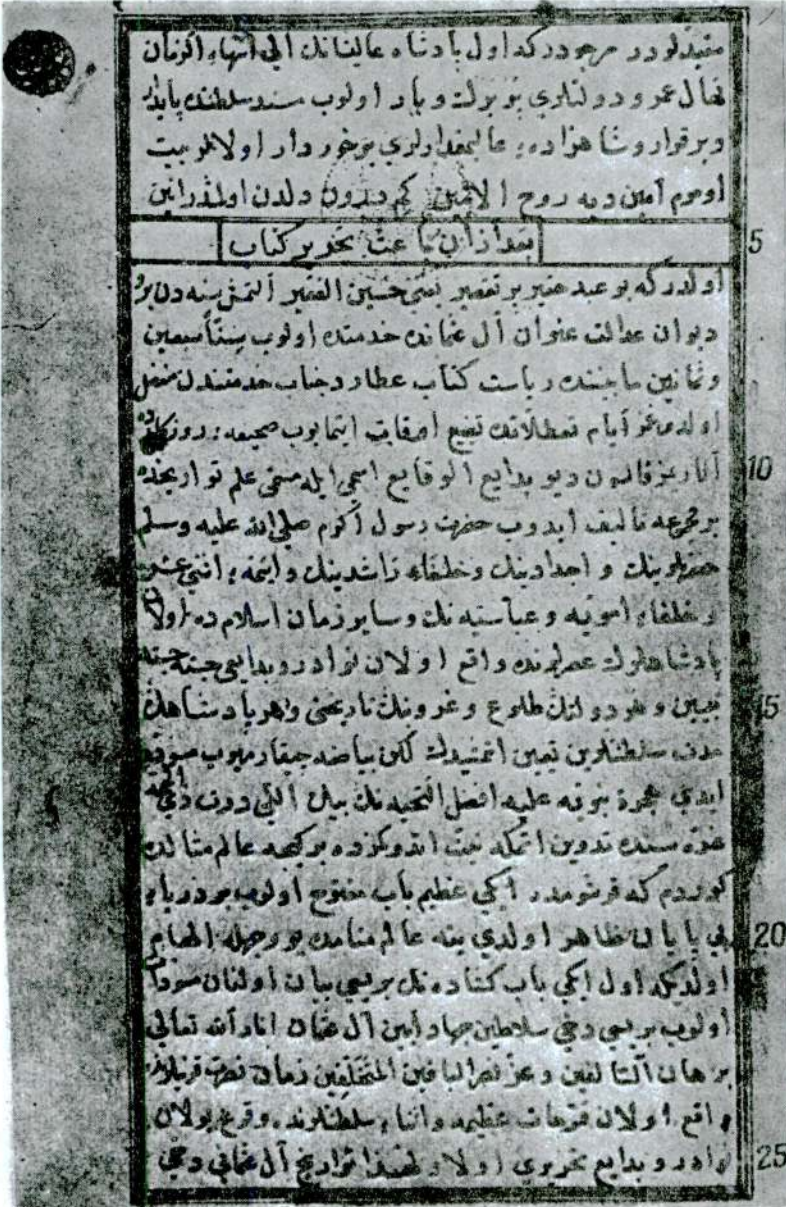 مقیدلودر مرجودركه اول پادشاه عالیشانك الی انتهاء الزمان
نهال عمر و دولتلری اولوب مسند سلطنتده پایدار
وبرقرار و شاهزادهٔ عالیمقدارلری برخوردار اولالر بیت
اوموم آمین دیه روح الامین كم درون دلدن اولندر
بعد ازان باعث تحریر كتاب
5
اولدركه بو عبد حقیر بر تقصیر یعنی حسین الفقیر التمش سنه دن برو
دیوان عدالت عنوان آل عثمانده خدمتده اولوب ستة سبعین
وثمانین مابیننده ریاست كتاب عطارد جناب خدمتندن منفصل
اولدوغمز ایام تعطلاتده تضیع اوقات ایتمایوب صحیفهٔ روزكارده
آثارمز قالسون دیو بدایع الوقایع اسمی ایله مسمی علم تواریخده
10
بر مجموعه تالیف ایدوب حضرت رسول اكرم صلی الله علیه وسلم
حضرتلرینك و اجدادینك وخلفاء راشدینك وایمهٔ اثنی عشرك
و خلفاء امویه و عباسیه نك وسایر زمان اسلام ده اولان
پادشاهلرك عصرلرنده واقع اولان نوادر و بدایعی جسته جسته
تبیین و هر دولتك طلوع و غروبنك تاریخنی و هر پادشاهك
15
مدت سلطنتلرین تعیین اتمشیدك لكن بیاضه چیقارمیوب مسوده
ایدی هجرة نبویه علیه افضل التحیه نك بیك اللی درت ذی الحجه
غره سنده تدوین اتمكه نیت اندوكمزده بر كیجه عالم مثالده
كوردم كه قرشومده ایكی عظیم باب مفتوح اولوب بر دریای
بی پایان ظاهر اولدی ینه عالم منامده بو وجهله الهام
20
اولدیكه اول ایكی باب كشاده نك بریسی بیان اولنان سودا
اولوب بریسی دخی سلاطین جهاد آیین آل عثمان انار الله تعالی
برهان السالفین و عز نصر الباقین المتخلفین زمان نصرت قرینلرنده
واقع اولان فتوحات عظیمه و اثناء سلطنتلرنده وقوع بولان
نوادر و بدایع تحریری اولا و لهذا تواریخ آل عثمانی دخی
25